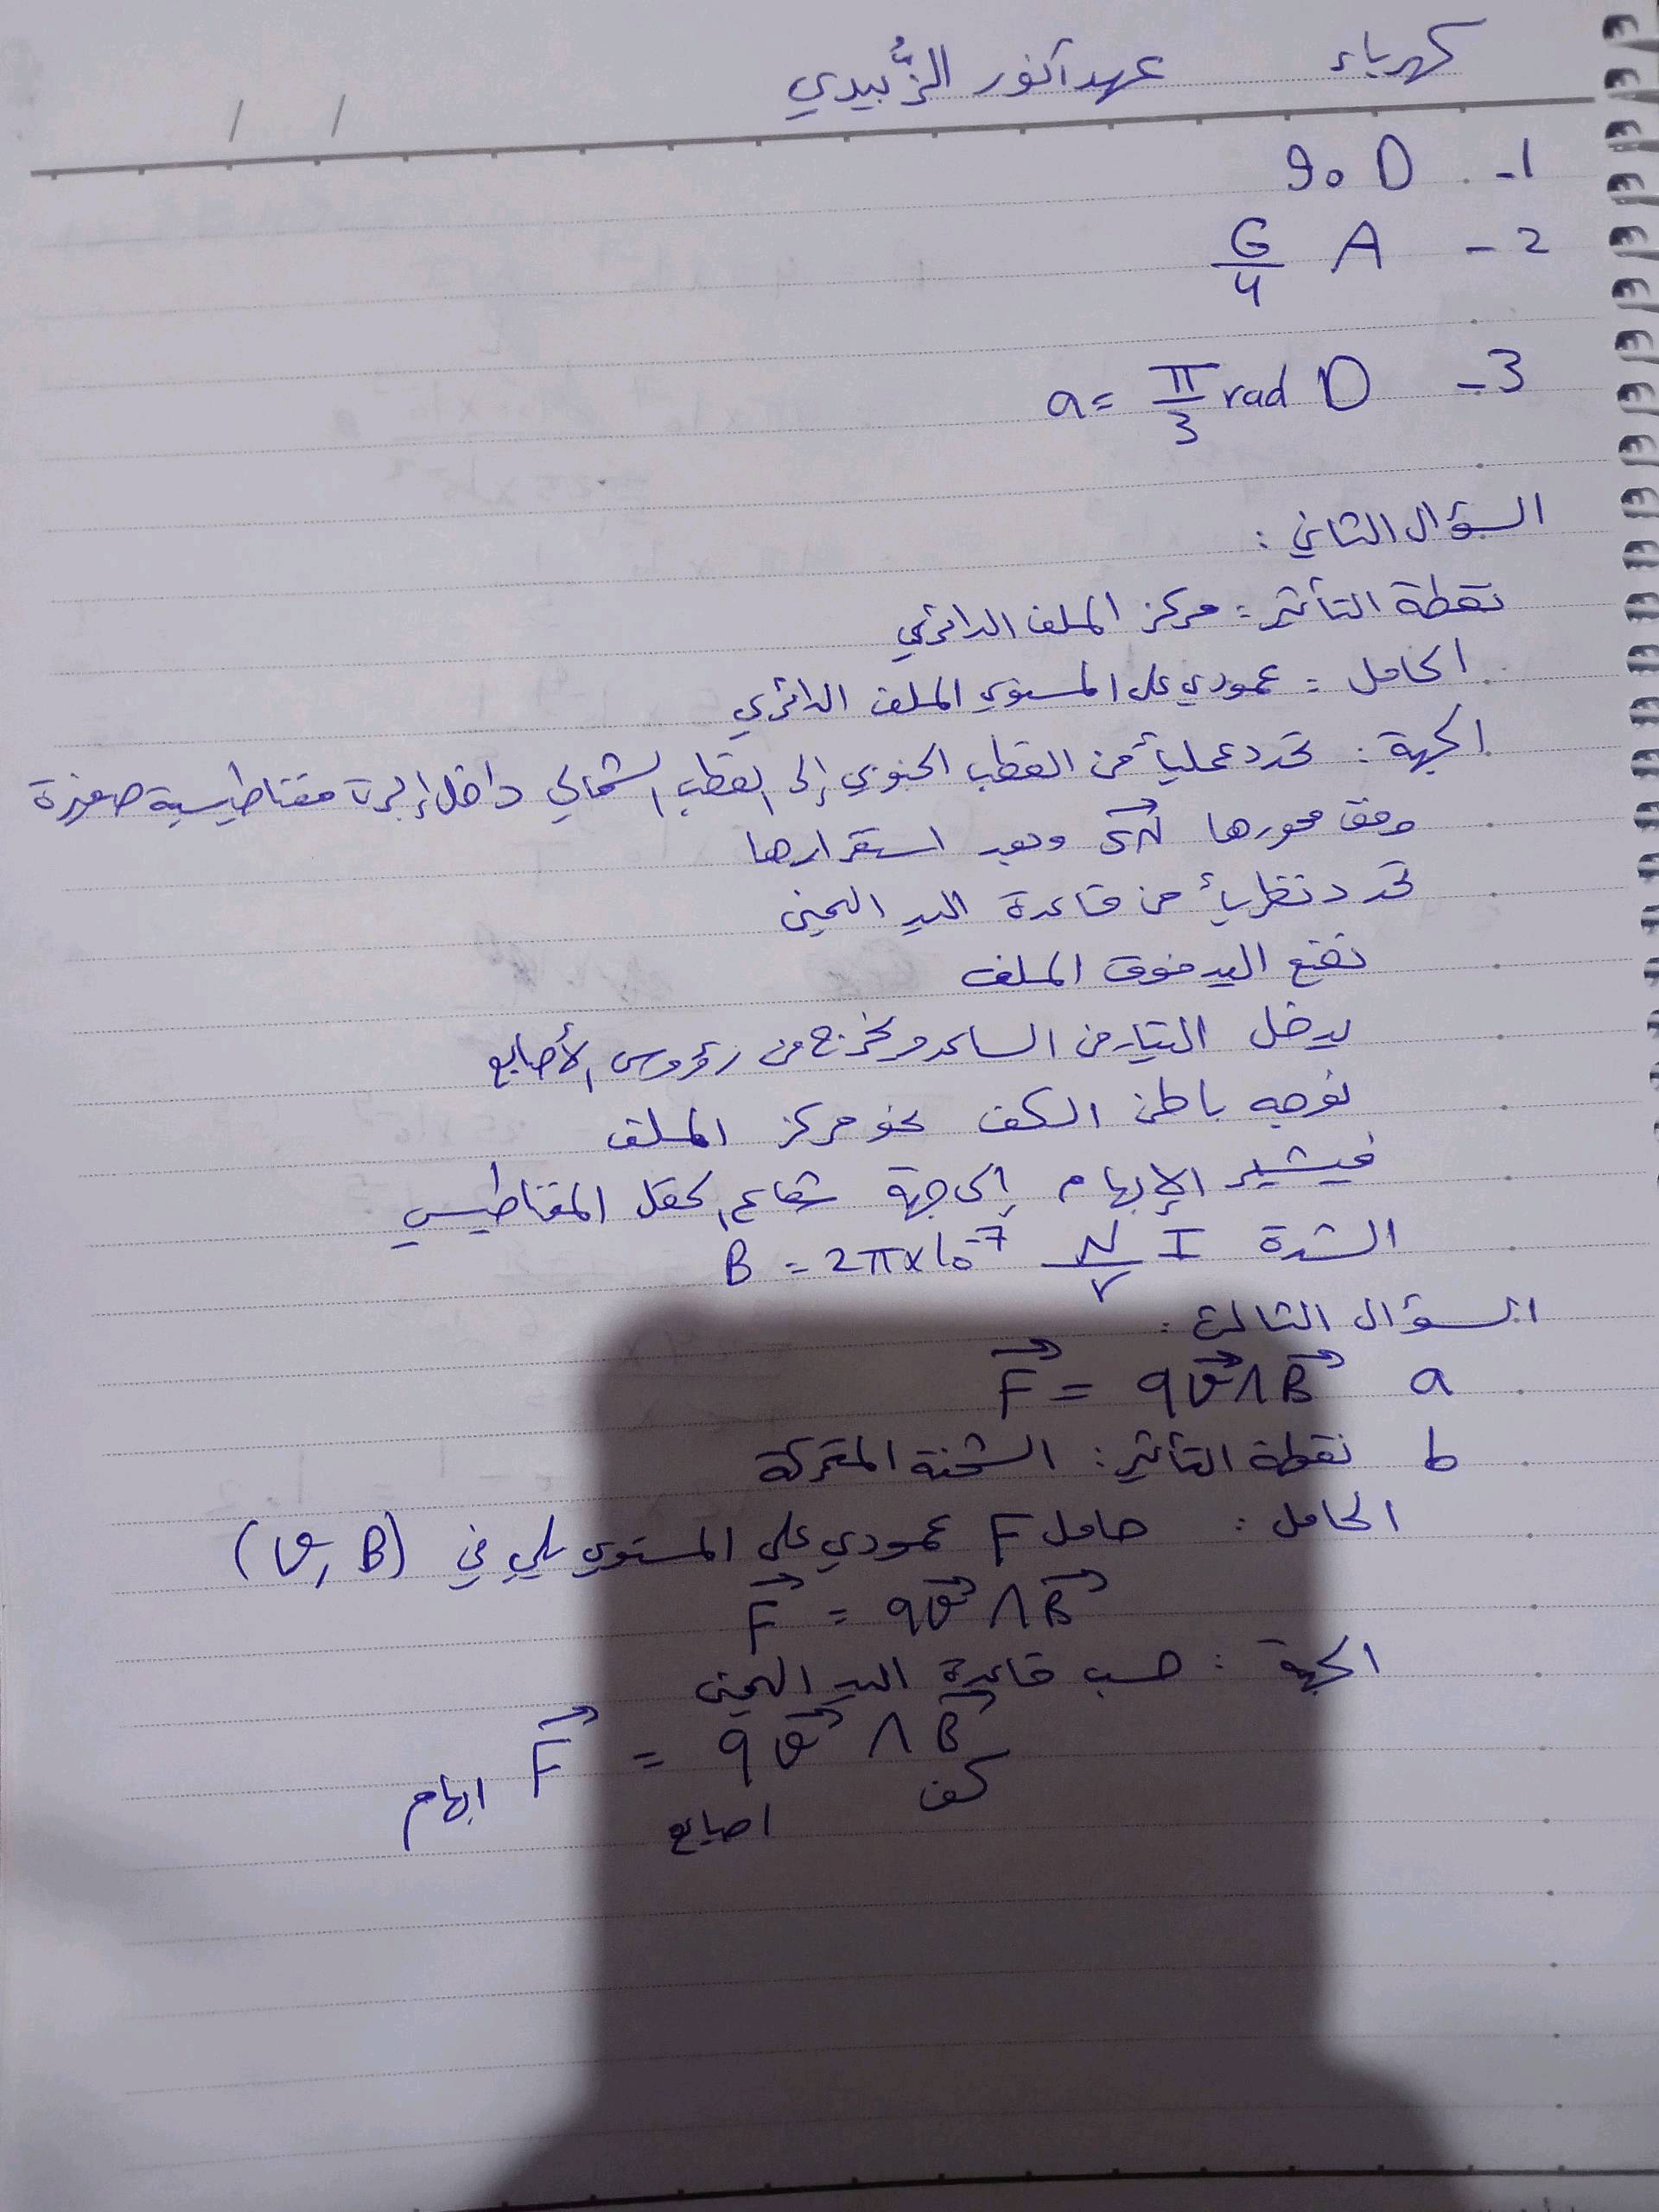 كهرباء عهد أنور الزُّبيدي
/ /
1- D 90
2- A G/4
3- D a = π/3 rad
السؤال الثاني :
نقطة التأثير : مركز الملف الدائري
الحامل : عمودي على المستوي الملف الدائري
الجهة : تحدد عملياً من القطب الجنوبي إلى القطب الشمالي داخل إبرة مغناطيسية صغيرة
وفق محورها وبعد استقرارها
تحدد نظرياً من قاعدة اليد اليمنى
نضع اليد فوق الملف
يدخل التيار من الساعد ويخرج من رؤوس الأصابع
نوجه باطن الكف نحو مركز الملف
فيشير الإبهام إلى جهة شعاع الحقل المغناطيسي
الشدة B = 2π×10⁻⁷ N/r I
السؤال الثالث :
a F⃗ = qv⃗ ∧ B⃗
b نقطة التأثير : الشحنة المتحركة
الحامل : حامل F عمودي على المستوي في (v, B)
F⃗ = qv⃗ ∧ B⃗
الجهة : حسب قاعدة اليد اليمنى
F⃗ = qv⃗ ∧ B⃗
ابهام اصابع كف